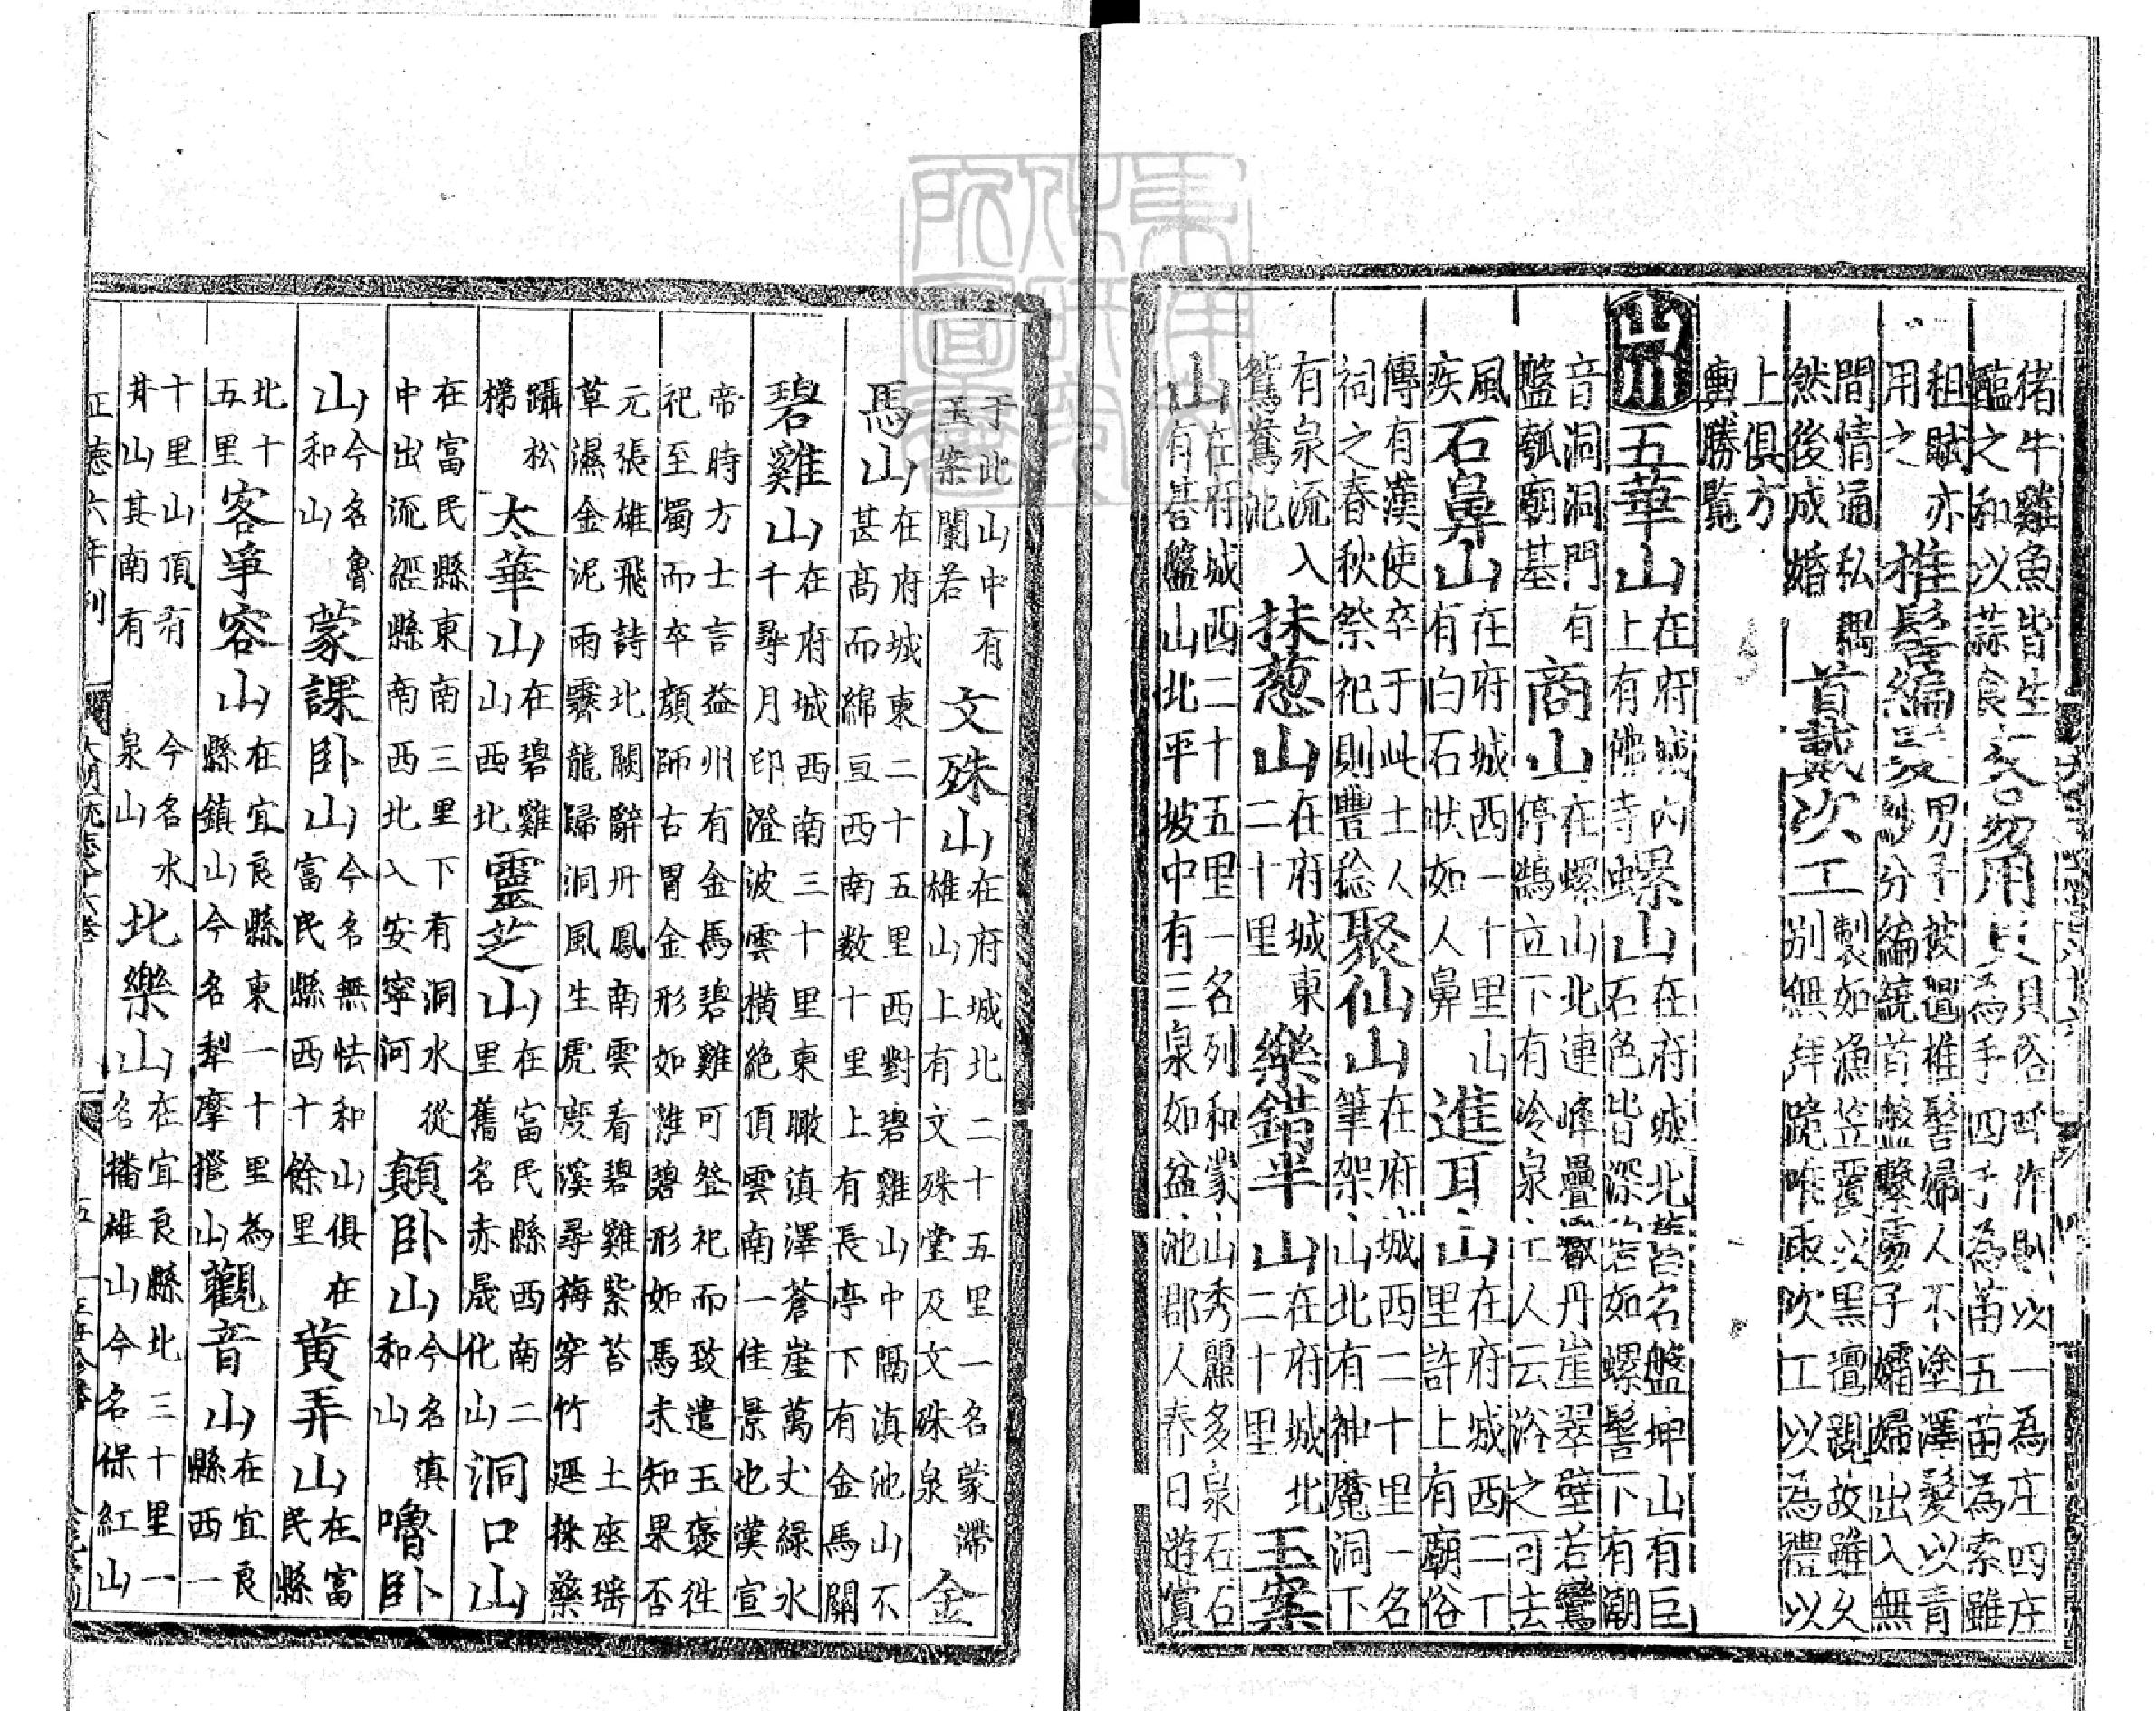 猪牛雞魚皆生醢之和以蒜食交易用貝貝俗呼作𧴩以一為庄四庄為手四手為苗五苗為索雖
租賦亦用之椎髻編髮男子披氊椎髻婦人不塗澤髮以青紗分編繞首盤繫子孀婦出入無
間情通私耦然後成婚首戴次工製如漁笠覆以黑氊親故雖久別無拜跪唯取次工以為禮以
上俱方輿勝覧
山川五華山在府城内上有佛寺螺山在府城北舊名盤坤山有巨石色皆深若如螺髻下有潮
音洞洞門有盤瓠廟基商山在螺山北連峰疊巘丹崖翠壁若鸞停鵠立下有冷泉土人云浴之可去
風疾石鼻山在府城西一十里山有白石狀如人鼻進耳山在府城西二十里許上有廟俗
傳有漢使卒于此土人祠之春秋祭祀則豐稔聚仙山在府城西二十里一名筆架山北有神魔洞下
有泉流入鴛鴦池抹葱山在府城東二十里樂錯半山在府城北二十里玉案
山在府城西二十五里一名列和蒙山秀麗多泉石石有碁盤山北平坡中有三泉如盆池郡人春日遊賞
于此山中有玉案蘭若文殊山在府城北二十五里一名蒙滯雄山上有文殊堂及文殊泉金
馬山在府城東二十五里西對碧雞山中隔滇池山不甚高而綿亘西南数十里上有長亭下有金馬關
碧雞山在府城西南三十里東瞰滇澤蒼崖萬丈綠水千尋月印澄波雲横絶頂雲南一佳景也漢宣
帝時方士言益州有金馬碧雞可祭祀而致遣王褒徃祀至蜀而卒顔師古曰金形如馬碧形如雞未知果否
元張雄飛詩北闕辭丹鳳南雲看碧雞紫苔土座瑶草濕金泥雨霽龍歸洞風生虎度溪尋梅穿竹逕採藥
躡松梯太華山在碧雞山西北靈芝山在富民縣西南二里舊名赤晟化山洞口山
在富民縣東南三里下有洞水從中出流經縣南西北入安寧河顛卧山今名滇和山嚕卧
山今名魯和山蒙課卧山今名無怯和山俱在富民縣西十餘里黄弄山在富民縣
北十五里客爭容山在宜良縣東一十里為縣鎮山今名犁摩㧪山觀音山在宜良縣西一
十里山頂有井山其南有泉山今名水北樂山在宜良縣北三十里一名播雄山今名保紅山
正德六年刊 大明一統志八十六卷 五